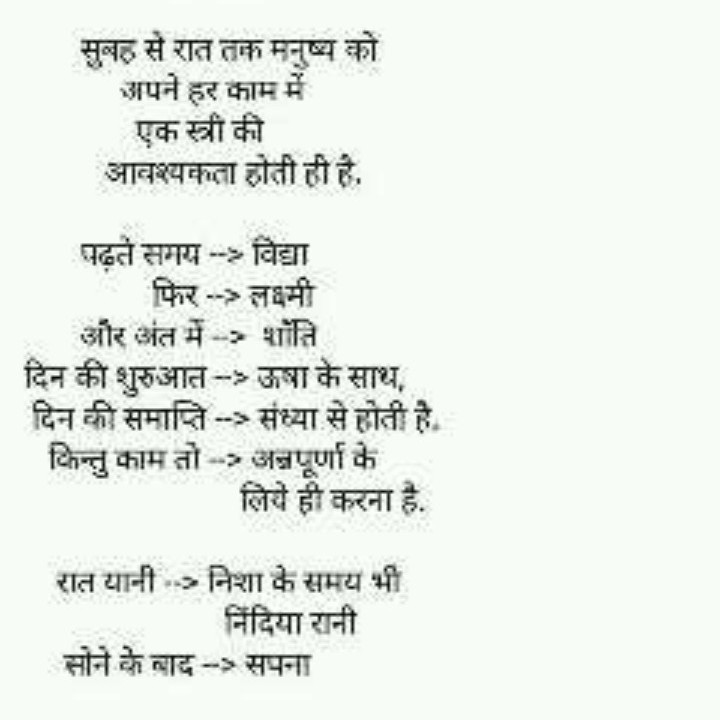 सुबह से रात तक मनुष्य को
अपने हर काम में
एक स्त्री की
आवश्यकता होती ही है.
पढ़ते समय --> विद्या
फिर --> लक्ष्मी
और अंत में --> शाँति
दिन की शुरुआत --> ऊषा के साथ,
दिन की समाप्ति --> संध्या से होती है.
किन्तु काम तो --> अन्नपूर्णा के
लिये ही करना है.
रात यानी --> निशा के समय भी
निंदिया रानी
सोने के बाद --> सपना